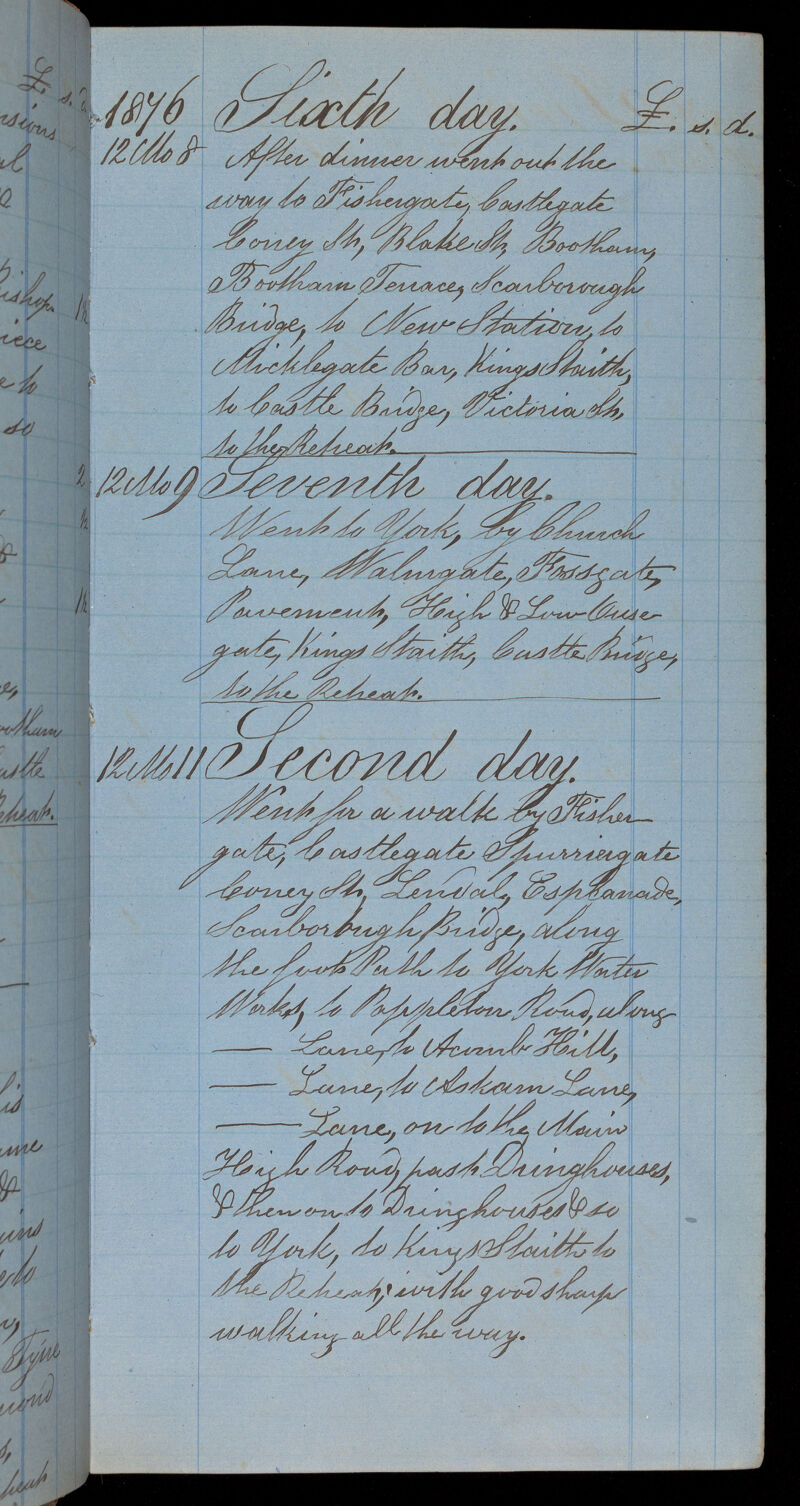 1876 Sixth day. £. s. d.
12 Mo 8 After dinner went out the
way to Fishergate, Castlegate
Coney St, Blake St, Bootham,
Bootham Terrace, Scarborough
Bridge, to New Station, to
Micklegate Bar, Kings Staith,
to Castle Bridge, Victoria St,
to the Retreat.
12 Mo 9 Seventh day.
Went to York, by Church
Lane, Walmgate, Fossgate,
Pavement, High & Low Ouse
gate, Kings Staith, Castle Bridge,
to the Retreat.
12 Mo 11 Second day.
Went for a walk by Fisher
gate, Castlegate Spurriergate
Coney St, Lendal, Esplanade,
Scarborough Bridge, along
the foot Path to York Water
Works, to Poppleton Road, along
— Lane, to Acomb Hill,
— Lane, to Askam Lane,
— Lane, on to the Main
High Road, past Dringhouses,
& then on to Dringhouses & so
to York, to Kings Staith to
the Retreat; with good sharp
walking all the way.